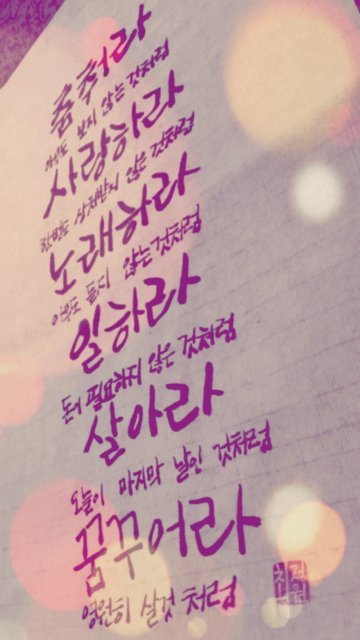 춤춰라
아무도 보지 않는 것처럼
사랑하라
한번도 상처받지 않은 것처럼
노래하라
아무도 듣지 않는 것처럼
일하라
돈이 필요하지 않은 것처럼
살아라
오늘이 마지막 날인 것처럼
꿈꾸어라
영원히 살것 처럼